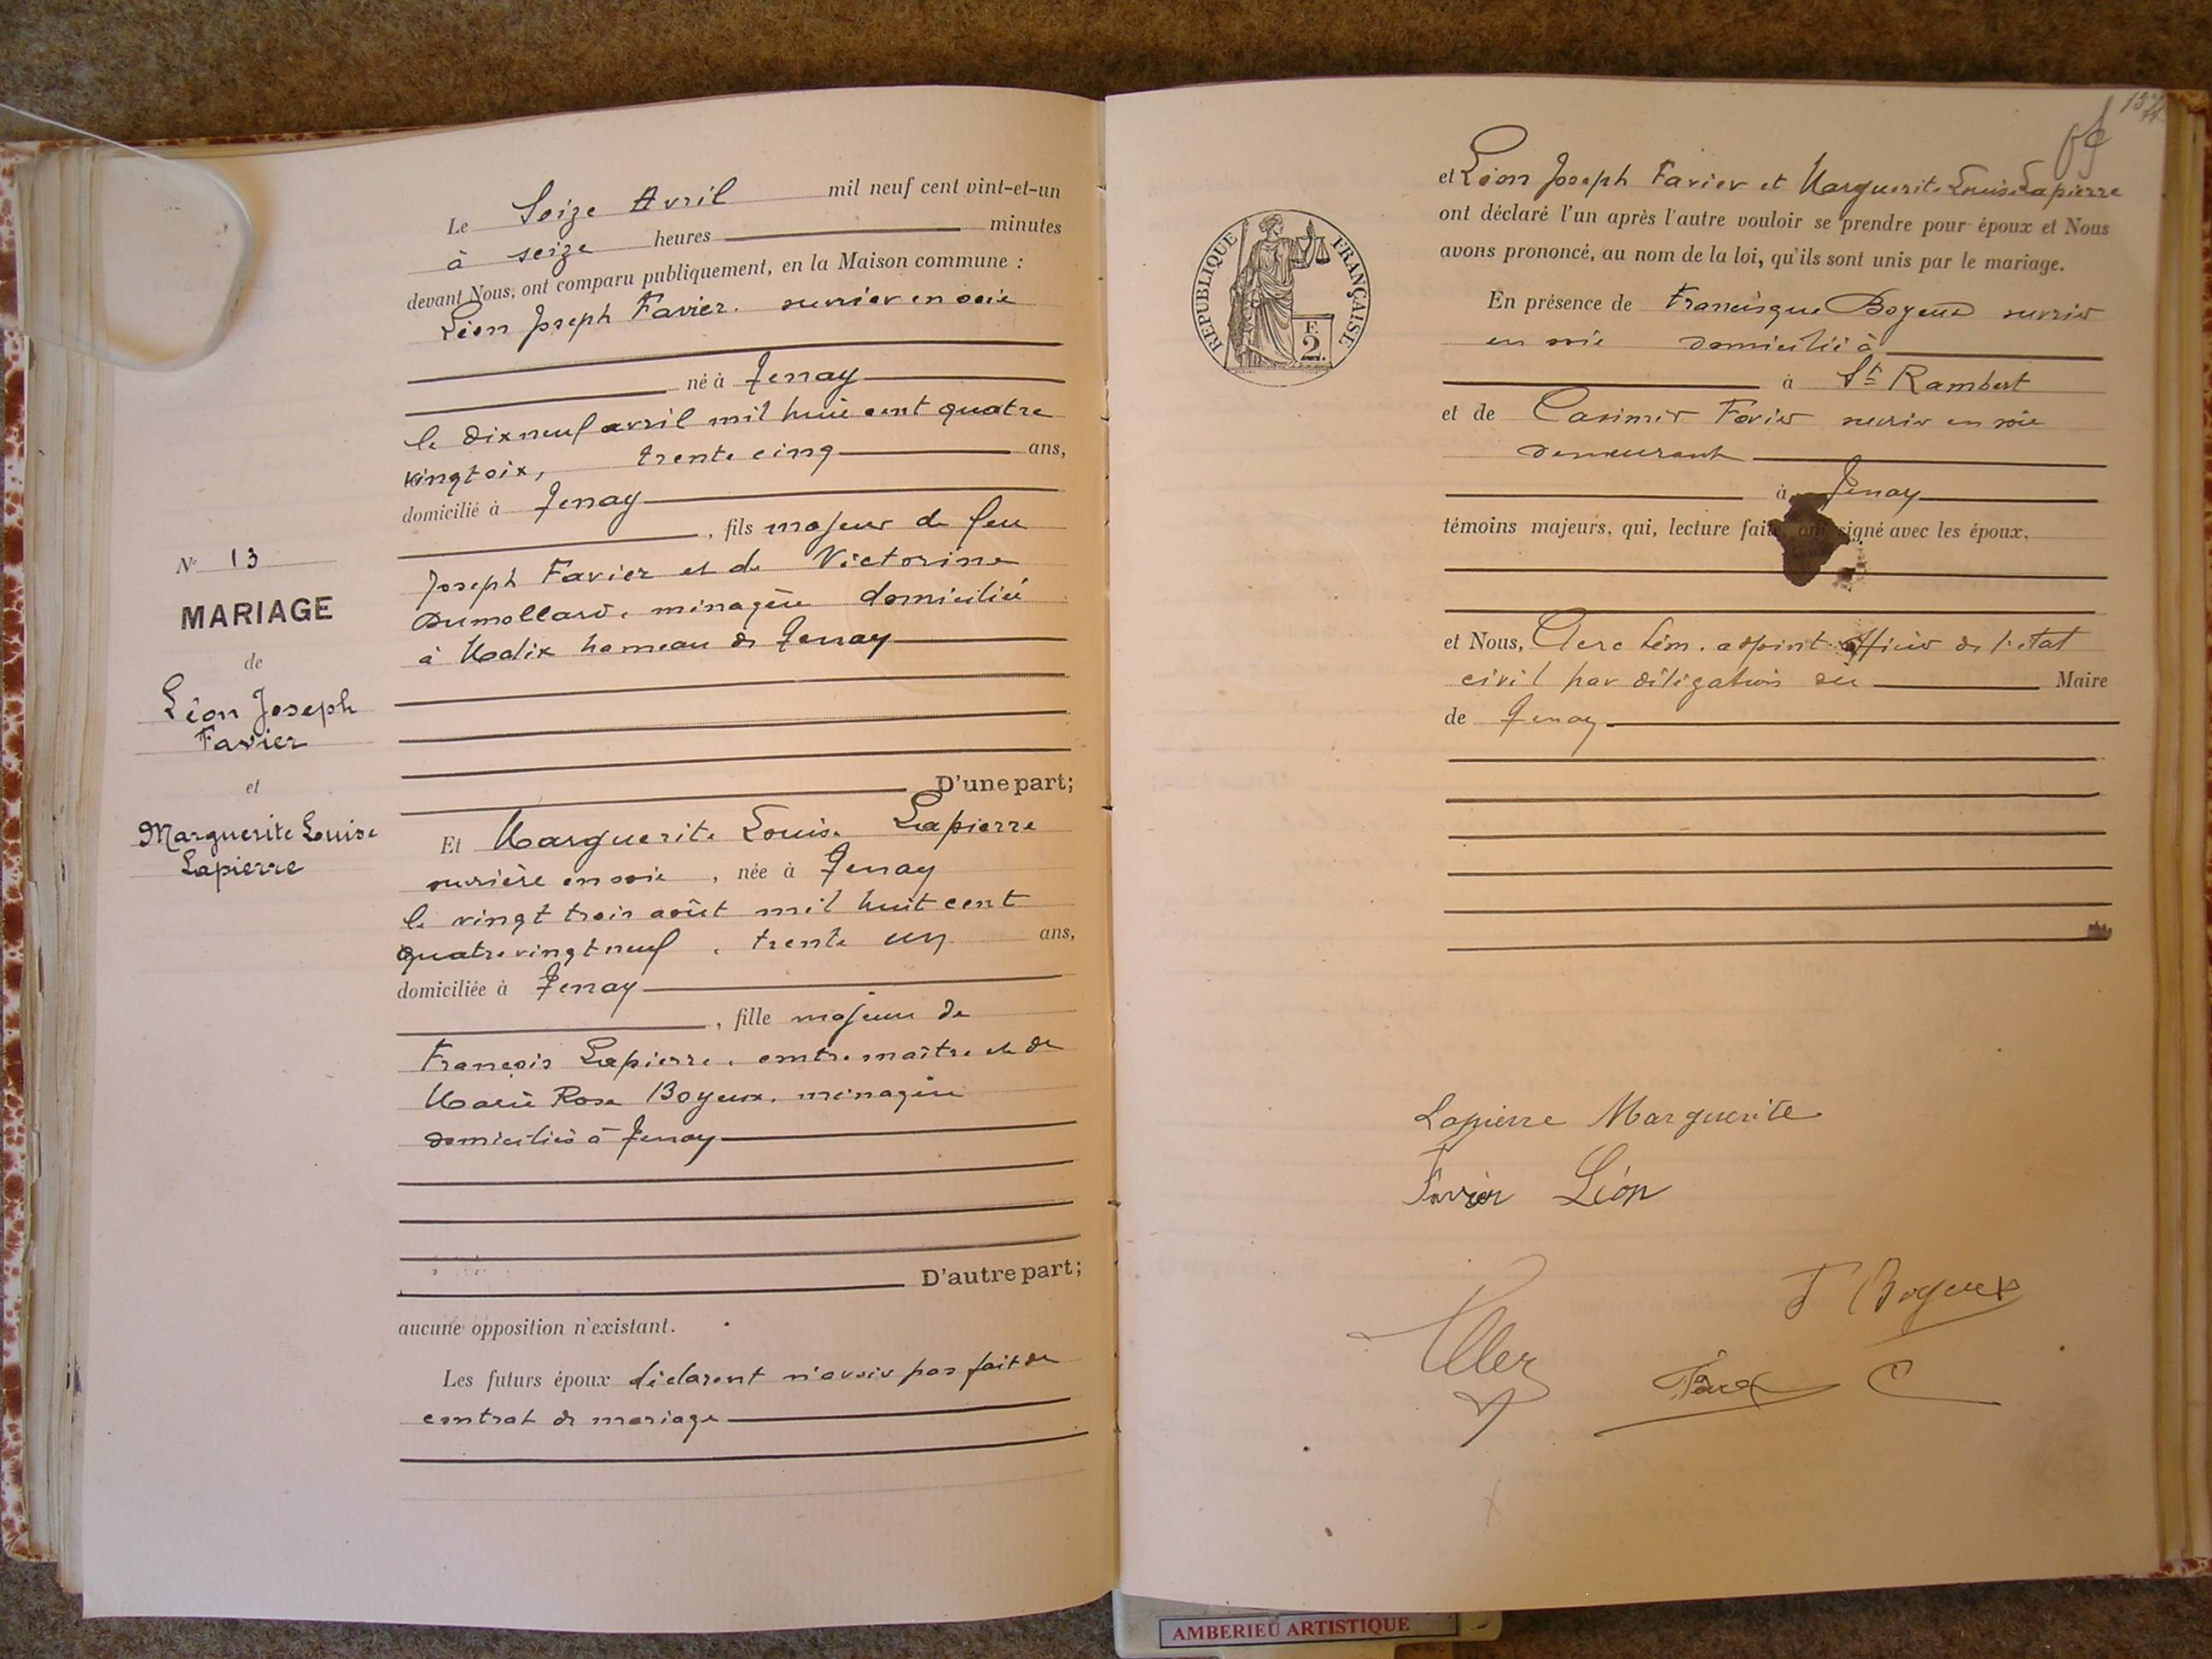 Le Seize Avril mil neuf cent vint-et-un
à seize heures minutes
devant Nous, ont comparu publiquement, en la Maison commune :
Léon Joseph Favier. ouvrier en soie
né à Tenay
le dix neuf avril mil huit cent quatre
vingt six, trente cinq ans,
domicilié à Tenay
, fils majeur de feu
Joseph Favier et de Victorine
Dumollard, ménagère domiciliée
à Malix hameau de Tenay
D'une part;
Et Marguerite Louise Lapierre
ouvrière en soie, née à Tenay
le vingt trois août mil huit cent
quatre vingt neuf, trente un ans,
domiciliée à Tenay
, fille majeure de
François Lapierre, contremaître et de
Marie Rose Boyeux, ménagère
domiciliés à Tenay
D'autre part;
aucune opposition n'existant.
Les futurs époux déclarent n'avoir pas fait de
contrat de mariage
N° 13
MARIAGE
de
Léon Joseph
Favier
et
Marguerite Louise
Lapierre
et Léon Joseph Favier et Marguerite Louise Lapierre
ont déclaré l'un après l'autre vouloir se prendre pour époux et Nous
avons prononcé, au nom de la loi, qu'ils sont unis par le mariage.
En présence de Francisque Boyeux ouvrier
en soie domicilié à
à St Rambert
et de Casimir Favier ouvrier en soie
demeurant
à Tenay
témoins majeurs, qui, lecture faite, ont signé avec les époux,
et Nous, adjoint officier de l'état
civil par délégation du Maire
de Tenay
RÉPUBLIQUE FRANÇAISE
F.
2
Lapierre Marguerite
Favier Léon
F Boyeux
AMBERIEU ARTISTIQUE